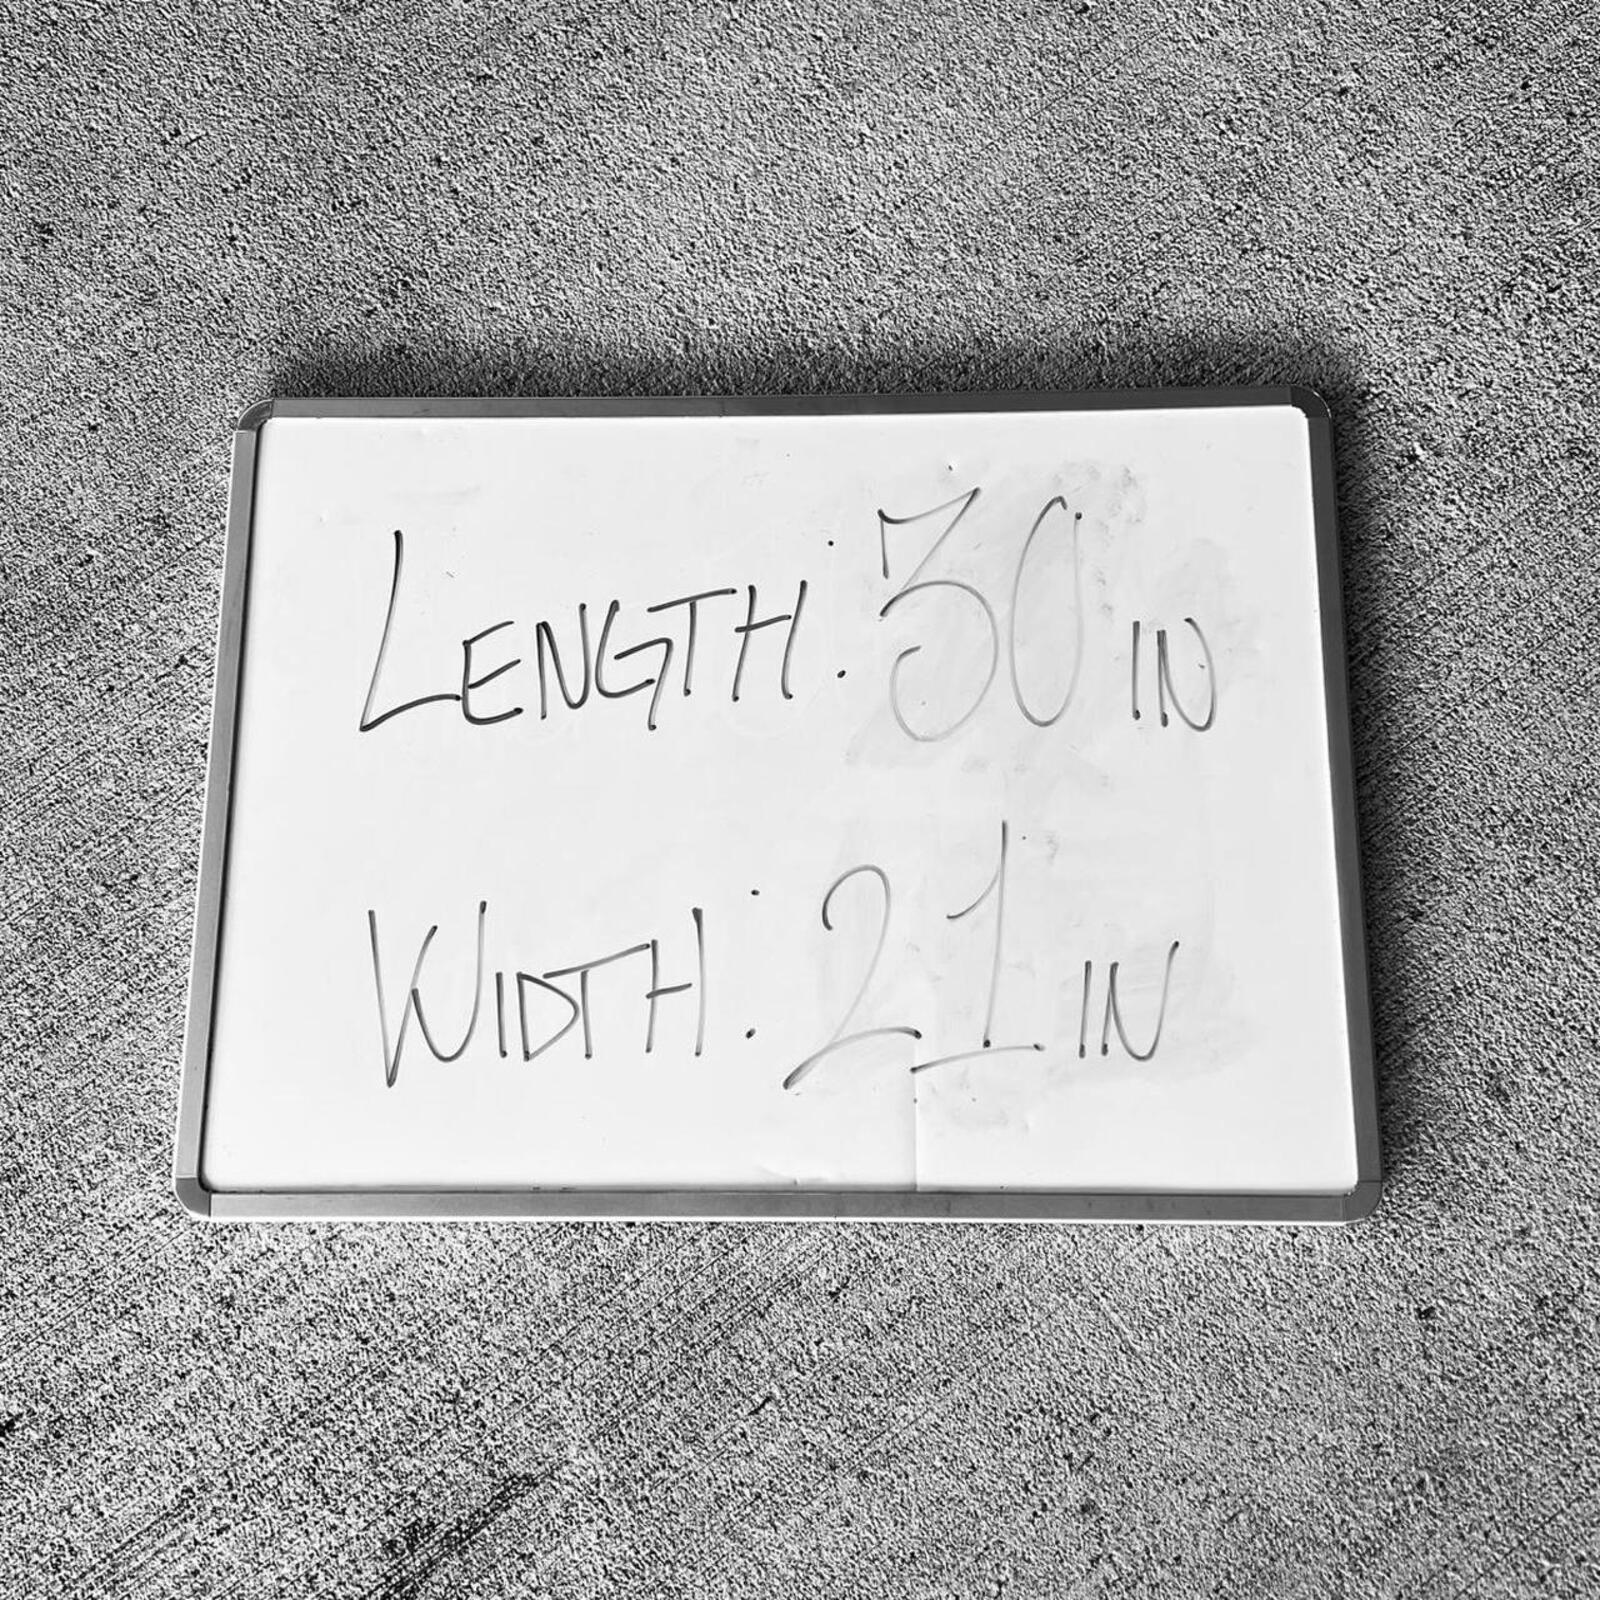 LENGTH: 30 IN
WIDTH: 21 IN